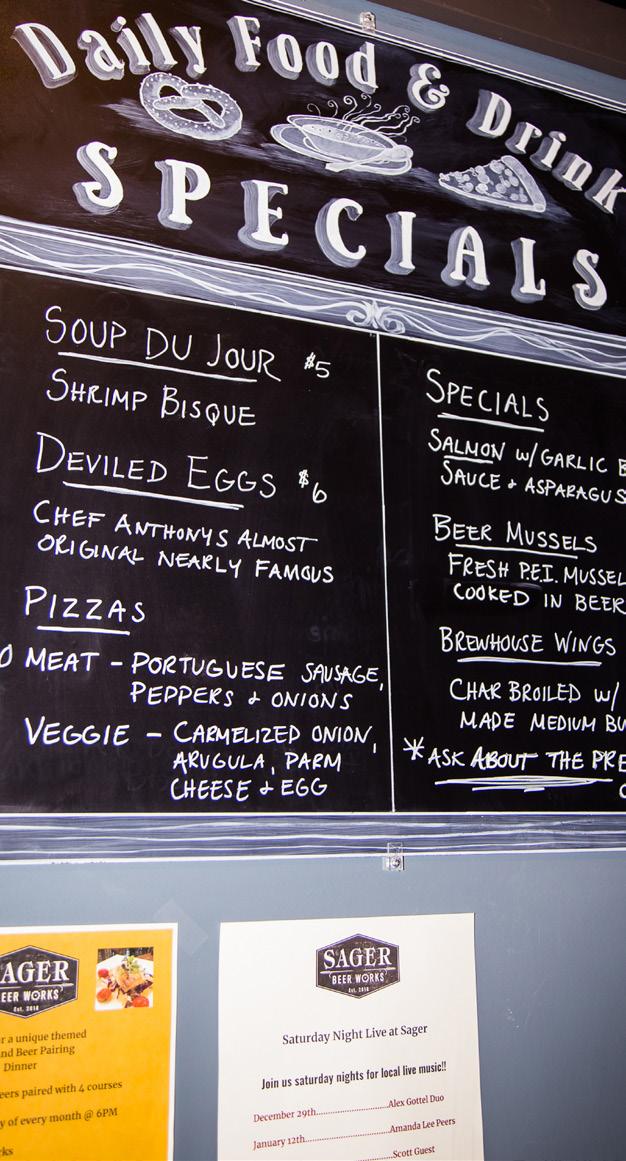 Daily Food & Drink
SPECIALS
SOUP DU JOUR $5
SHRIMP BISQUE
DEVILED EGGS $6
CHEF ANTHONYS ALMOST
ORIGINAL NEARLY FAMOUS
PIZZAS
MEAT - PORTUGUESE SAUSAGE,
PEPPERS & ONIONS
VEGGIE - CARMELIZED ONION,
ARUGULA, PARM
CHEESE & EGG
SPECIALS
SALMON W/ GARLIC
SAUCE & ASPARAGUS
BEER MUSSELS
FRESH P.E.I. MUSSEL
COOKED IN BEER
BREWHOUSE WINGS
CHAR BROILED W/
MADE MEDIUM
*ASK ABOUT THE
AGER
EER WORKS
Est. 2016
r a unique themed
nd Beer Pairing
Dinner
eers paired with 4 courses
y of every month @ 6PM
rks
SAGER
BEER WORKS
Est. 2016
Saturday Night Live at Sager
Join us saturday nights for local live music!!
December 29th....................Alex Gottel Duo
January 12th......................Amanda Lee Peers
......................Scott Guest